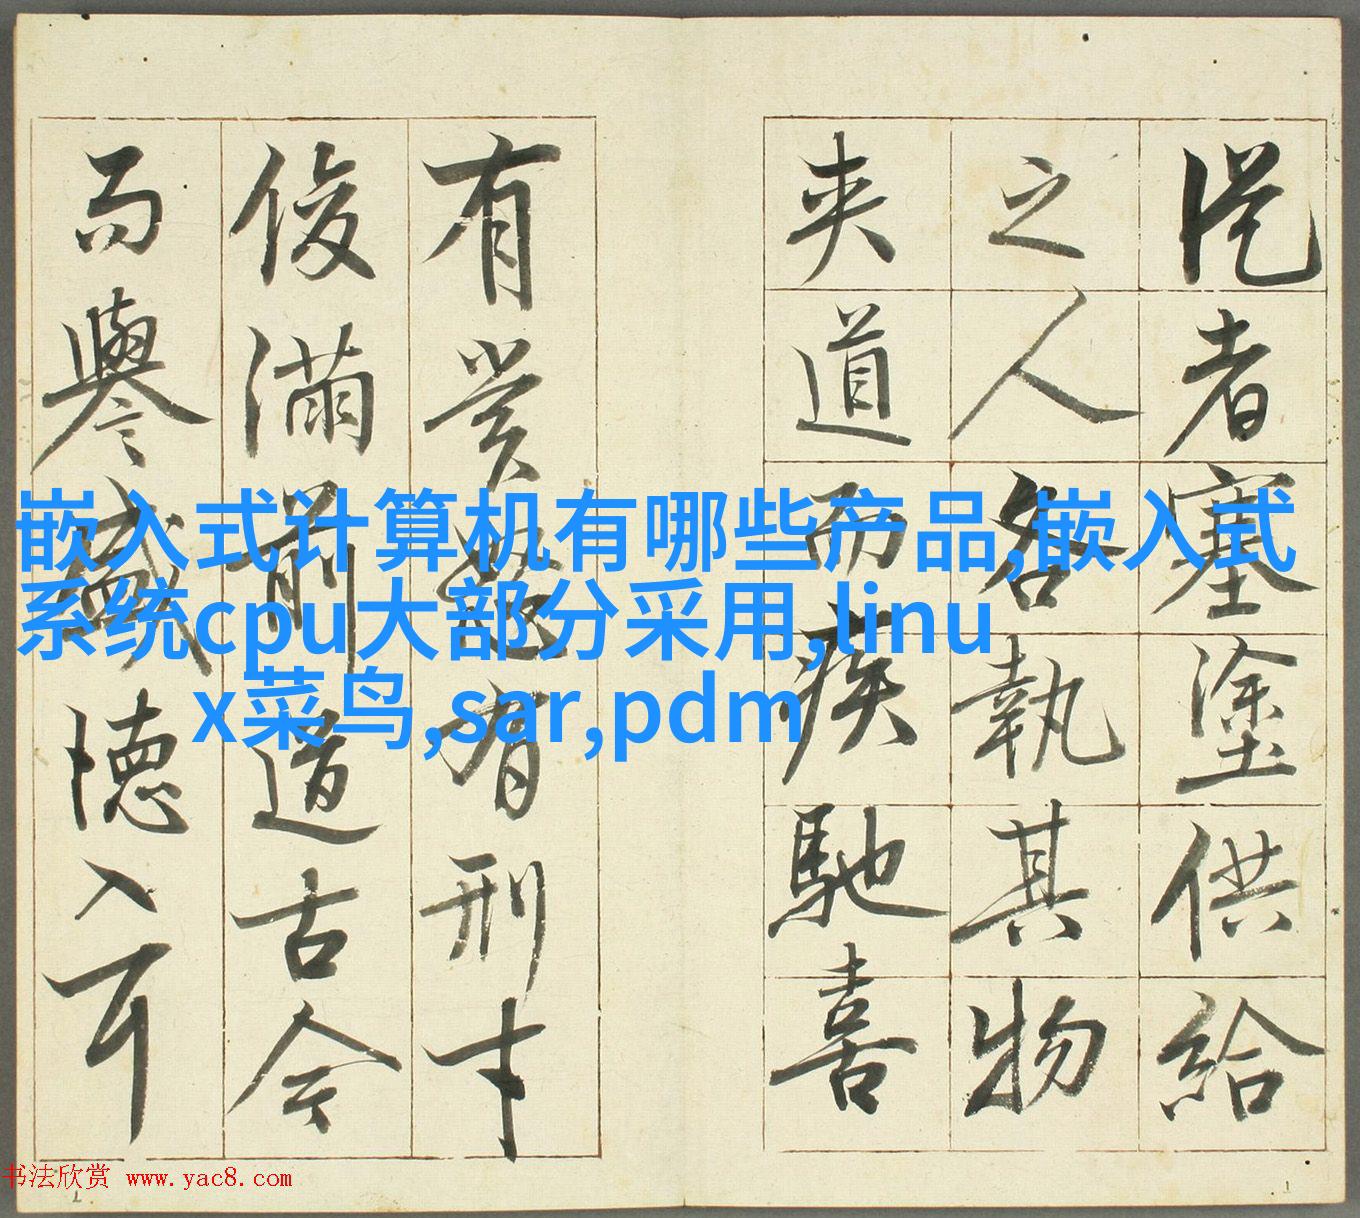 從者塞塗供給
之人各執其物
夾道而疾馳喜
有賞怒有刑才
俊滿前道古今
而譽盛德入耳
嵌入式计算机有哪些产品,嵌入式
系统cpu大部分采用,linu
x菜鸟,sar,pdm
书法欣赏 www.yac8.com